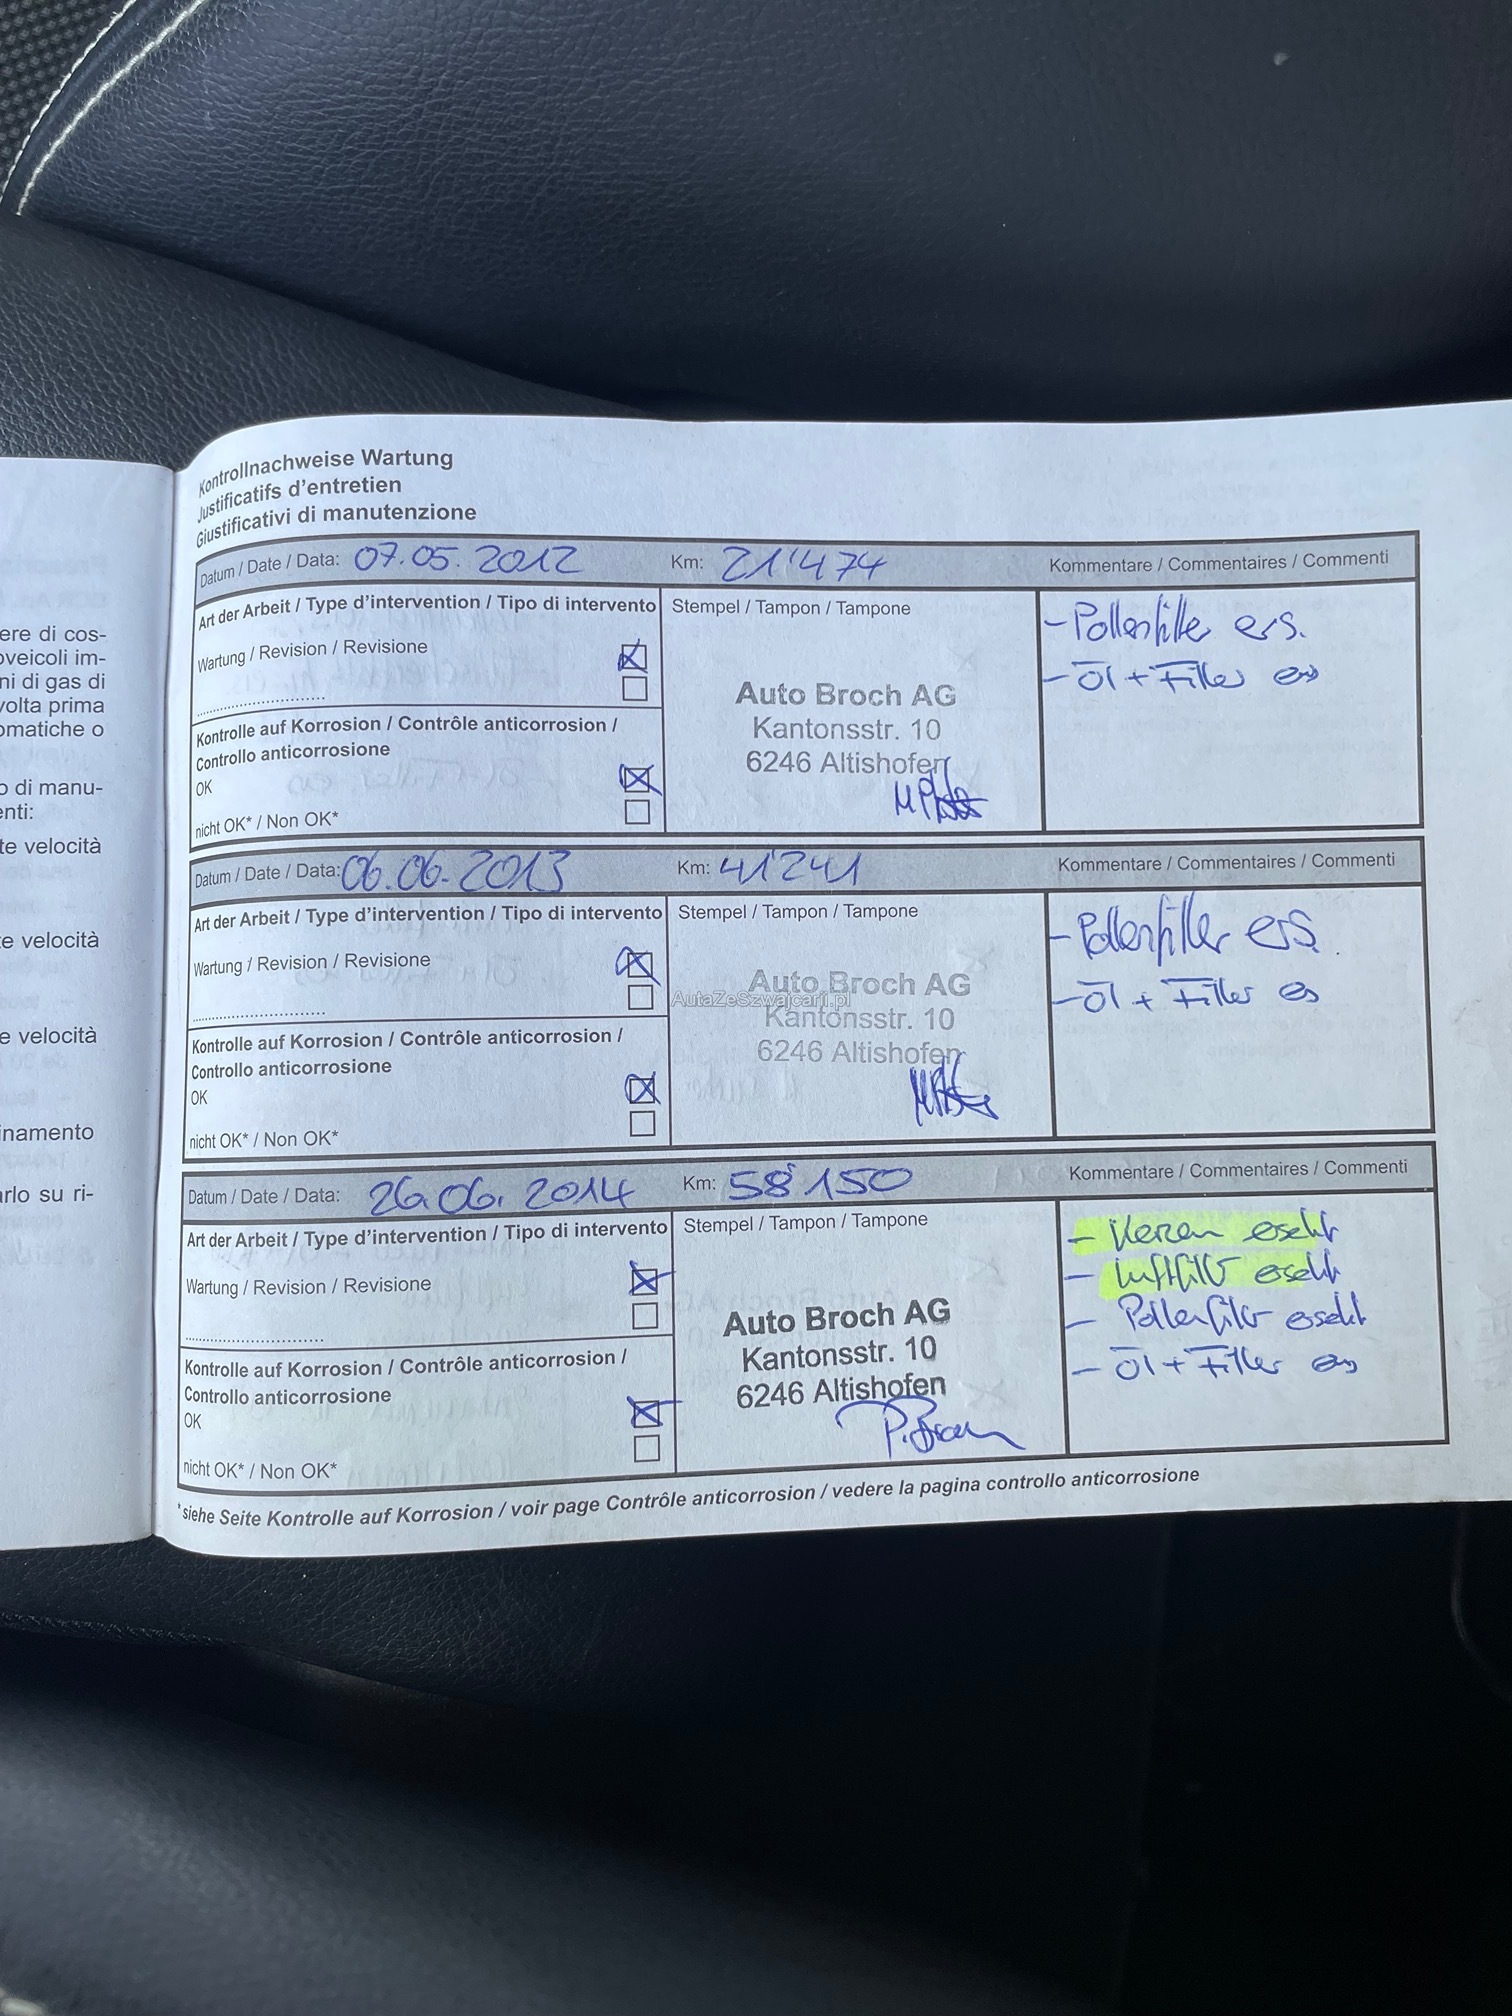 ere di cos-
oveicoli im-
ni di gas di
volta prima
omatiche o
o di manu-
enti:
te velocità
e velocità
e velocità
inamento
arlo su ri-
Kontrollnachweise Wartung
Justificatifs d'entretien
Giustificativi di manutenzione
Datum / Date / Data: 07.05.2012 Km: 21'474 Kommentare / Commentaires / Commenti
Art der Arbeit / Type d'intervention / Tipo di intervento
Wartung / Revision / Revisione
Kontrolle auf Korrosion / Contrôle anticorrosion /
Controllo anticorrosione
OK
nicht OK* / Non OK*
Stempel / Tampon / Tampone
Auto Broch AG
Kantonsstr. 10
6246 Altishofen
- Pollenfilter ers.
- Öl + Filter ers
Datum / Date / Data: 06.06.2013 Km: 41'241 Kommentare / Commentaires / Commenti
Art der Arbeit / Type d'intervention / Tipo di intervento
Wartung / Revision / Revisione
Kontrolle auf Korrosion / Contrôle anticorrosion /
Controllo anticorrosione
OK
nicht OK* / Non OK*
Stempel / Tampon / Tampone
Auto Broch AG
AutaZeSzwajcarii.pl
Kantonsstr. 10
6246 Altishofen
- Pollenfilter ers.
- Öl + Filter ers
Datum / Date / Data: 26.06.2014 Km: 58'150 Kommentare / Commentaires / Commenti
Art der Arbeit / Type d'intervention / Tipo di intervento
Wartung / Revision / Revisione
Kontrolle auf Korrosion / Contrôle anticorrosion /
Controllo anticorrosione
OK
nicht OK* / Non OK*
Stempel / Tampon / Tampone
Auto Broch AG
Kantonsstr. 10
6246 Altishofen
P. Broch
- Kerzen ersetzt
- Luftfilter ersetzt
- Pollenfilter ersetzt
- Öl + Filter ers
*siehe Seite Kontrolle auf Korrosion / voir page Contrôle anticorrosion / vedere la pagina controllo anticorrosione